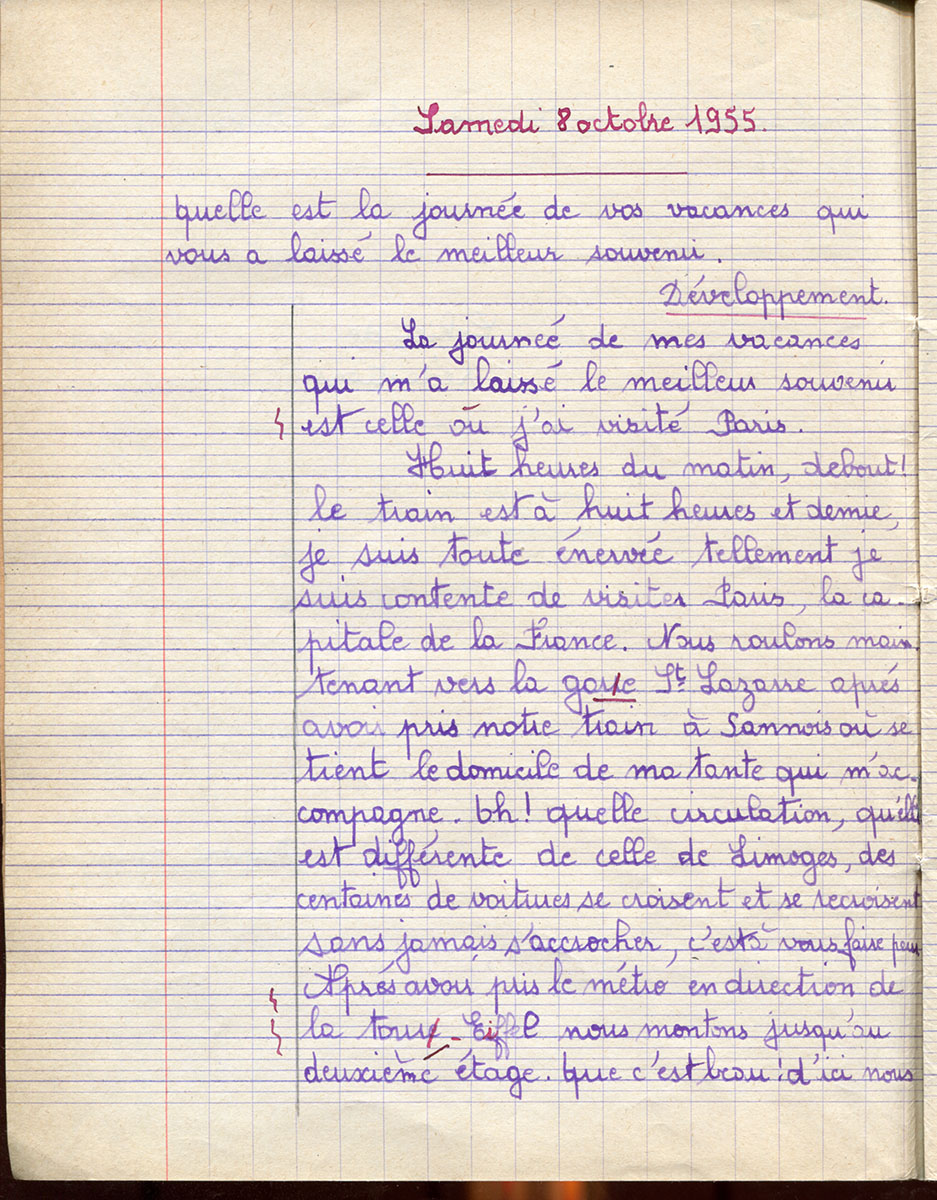 Samedi 8 octobre 1955.
quelle est la journée de vos vacances qui
vous a laissé le meilleur souvenir.
Développement.
La journeé de mes vacances
qui m'a laissé le meilleur souvenir
est celle où j'ai visité Paris.
Huit heures du matin, debout!
le train est à huit heures et demie,
je suis toute énervée tellement je
suis contente de visiter Paris, la ca-
pitale de la France. Nous roulons main
tenant vers la gare St Lazarre aprés
avoir pris notre train à Sannois où se
tient le domicile de ma tante qui m'ac-
compagne. Oh! quelle circulation, qu'elle
est différente de celle de Limoges, des
centaines de voitures se croisent et se recroisent
sans jamais s'accrocher, c'est à vous faire peur
Aprés avoir pris le métro en direction de
la tour - Eiffel nous montons jusqu'au
deuxième étage. Que c'est beau! d'ici nous